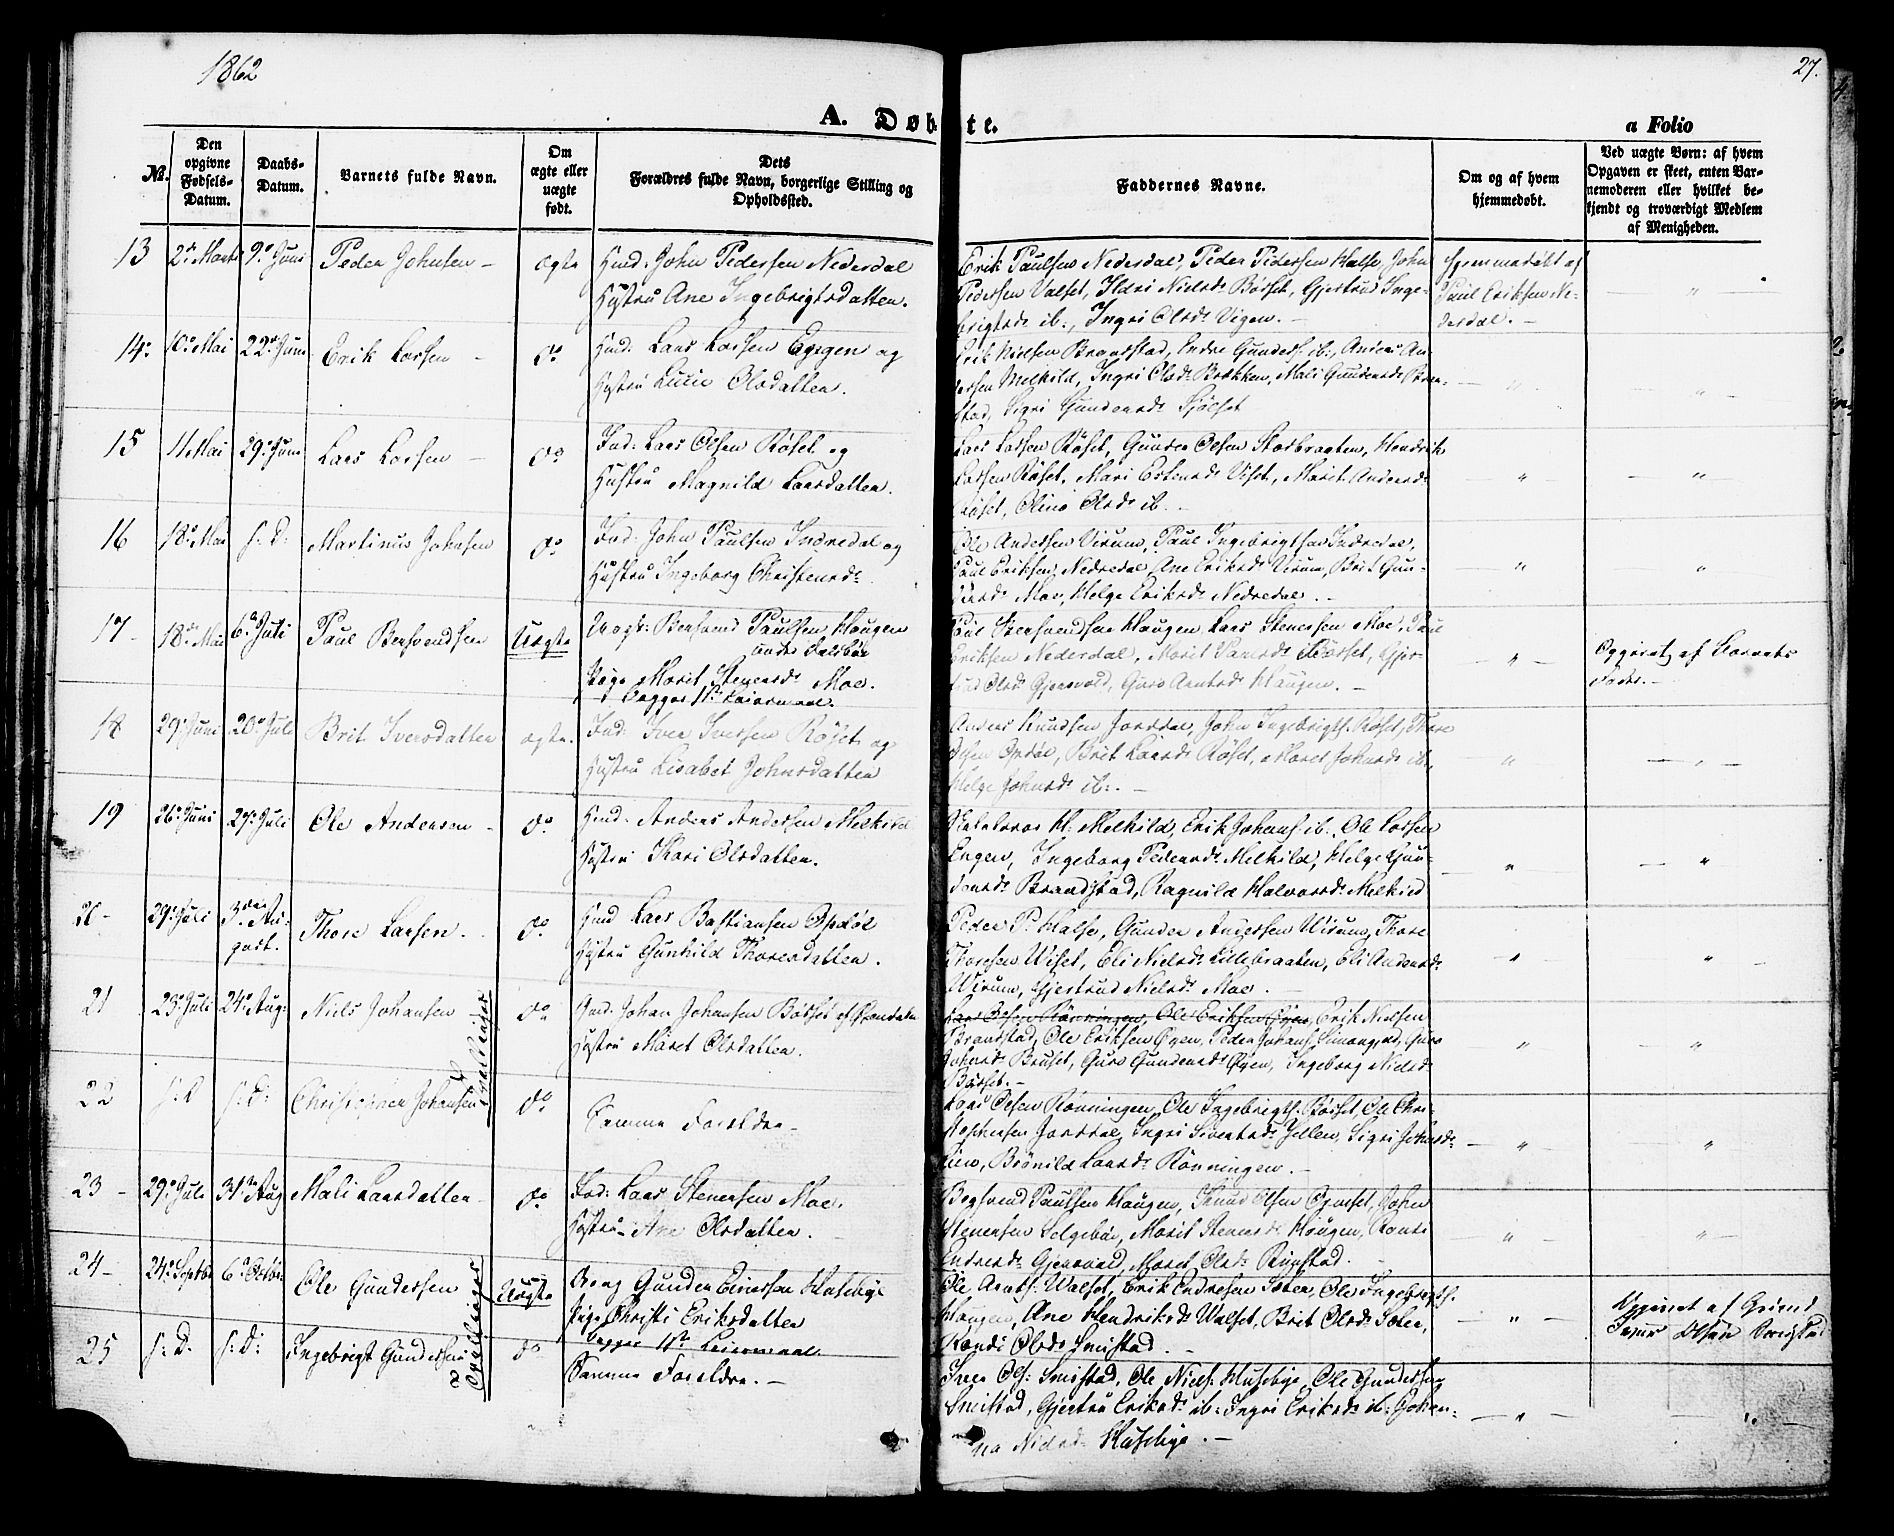 1862
27.
A. Døbte.
a Folio
No.
Den opgivne Fødsels-Datum.
Daabs-Datum.
Barnets fulde Navn.
Om ægte eller uægte født.
Dets Forældres fulde Navn, borgerlige Stilling og Opholdssted.
Faddernes Navne.
Om og af hvem hjemmedøbt.
Ved uægte Børn: af hvem Opgaven er skeet, enten Barnemoderen eller hvilket bekjendt og troværdigt Medlem af Menigheden.
13 2den Marts 9de Juni Peder Johnsen – ægte Hmd: John Pedersen Nederdal
Hustru Ane Ingebrigtsdatter.
Erik Paulsen Nederdal, Peder Pedersen Halse, John
Pedersen Valset, Ildri Nielsd: Børset, Gjertrud Inge-
brigtsd: ib., Ingri Olsd: Vigen. –
Hjemmedøbt af
Paul Eriksen Ne-
derdal. –
14. 10de Mai 22de Juni Erik Larsen – do Hmd: Lars Larsen Eggen og
Hustru Lucie Olsdatter.
Erik Nielsen Brandstad, Endre Gunders: ib., Anders An-
dersen Melhild, Ingri Olsd: Brekken, Mali Gundersd: Bran-
stad, Sigri Gundersd: Sjølset
15 11 Mai 29de Juni Lars Larsen – do Ind: Lars Olsen Røset og
Hustru Magnild Larsdatter.
Lars Larsen Røset, Gunder Olsen Storbraaten, Hendrik
Larsen Røset, Mari Estensd: Viset, Marit Andersd:
Røset, Olina Olsd: ib.
16 18de Mai s: D: Martinus Johnsen do Ind: John Paulsen Indredal og
Hustru Ingeborg Christensd:
Ole Andersen Virum, Paul Ingebrigtsen Indredal,
Paul Eriksen Nedredal, Ane Eriksd: Virum, Brit Gun-
dersd: Moe, Helge Eriksd: Nedredal. –
17 18de Mai 6te Juli Paul Bersvendsen Uægte Ungk: Bersvend Paulsen Haugen
under Indsbøe
Pige Marit Stenersd: Moe.
Begges 1ste Leiermaal.
Paul Bersvendsen Haugen, Lars Stenersen Moe, Paul
Eriksen Nederdal, Marit Larsd: Børset, Gjer-
trud Olsd: Gjersvold, Guro Arntsd: Haugen. –
Opgivet af Barnets
Fader. –
18 29de Juni 20de Juli Brit Iversdatter ægte. Ind: Iver Iversen Røset og
Hustru Lisabet Johnsdatter
Anders Knudsen Jorddal, John Ingebrigts: Røset, Thore
Olsen Opdøl, Brit Larsd: Røset, Maret Johnsd: ib.,
Helge Johnsd: ib. –
19 26de Juni 27de Juli Ole Andersen – do Hmd: Anders Andersen Melhild
Hustru Kari Olsdatter.
Halvor H: Melhild, Erik Johans: ib., Ole Larsen
Engen, Ingeborg Pedersd: Melhild, Helge Gun-
dersd: Brandstad, Ragnild Halvorsd: Melhild
20 – 29de Juli 3die Au-
gust. Thore Larsen. do Hmd Lars Bastiansen Opdøl
Hustru Gunhild Thoresdatter.
Peder P: Halse, Gunder Andersen Wirum, Thore
Thoresen Wiset, Eli Nielsd: Lillebraaten, Eli Andersd:
Wirum, Gjertrud Nielsd: Moe. –
21 23de Juli 24de Aug: Niels Johansen do Hmd: Johan Johansen Børset
Hustru Maret Olsdatter.
Lars Olsen Rønningen, Ole Eriksen Øyen, Erik Nielsen
Brandstad, Ole Eriksen Øyen, Peder Johans: , Guro
Johnsd: Bruset, Guro Gundersd: Øyen, Ingeborg Nielsd:
Børset. –
2 Tvillinger
22 s: D s: D: Christopher Johansen do
Samme Forældre –
Lars Olsen Rønningen, Ole Ingebrigts: Børset, Ole Chri-
stophersen Jorddal, Ingri Sivertsd: , Sigri Johnsd:
Lien, Brønild Larsd: Rønningen. –
23 – 29de Juli 31te Aug Mali Larsdatter do Ind: Lars Stenersen Moe.
Hustru Ane Olsdatter.
Begsvend Paulsen Haugen, Knud Olsen, John
Stenersen Selgebøe, Marit Stenersd: Haugen, Randi
Endresd: Gjersvold, Maret Olsd: Ringstad.
24 – 24de Septbr 6te Octbr Ole Gundersen Uægte Gunder Einersen Husebye
Pige Christi Eriksdatter
begges 1ste Leiermaal.
Ole Arnts: Walset, Erik Endresen Soler, Ole Ingebrigts:
Haugen, Ane Hendriksd: Walset, Brit Olsd: Soler,
Randi Olsd: Smistad. –
Opgivet af
Iver Olsen Smistad
2 Tvillinger
25 s: D. s: D: Ingebrigt Gundersen do
Samme Forældre. –
Iver Ols: Smistad, Ole Niels: Husebye, Ole Gundersen
Smistad, Gjertru Eriksd: ib: Ingri Eriksd: ib: Johan-
na Nielsd: Husebye. –